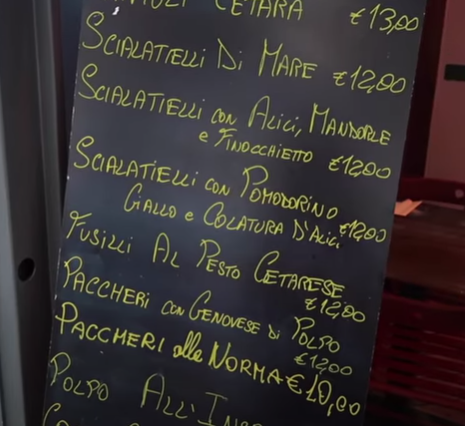 CETARA €13,00
SCIALATIELLI DI MARE €12,00
SCIALATIELLI con ALICI, MANDORLE
e FINOCCHIETTO €12,00
SCIALATIELLI con POMODORINO
GIALLO e COLATURA D'ALICI €12,00
FUSILLI AL PESTO CETARESE
€12,00
PACCHERI con GENOVESE DI POLPO
€12,00
PACCHERI alla NORMA €10,00
POLPO ALL'